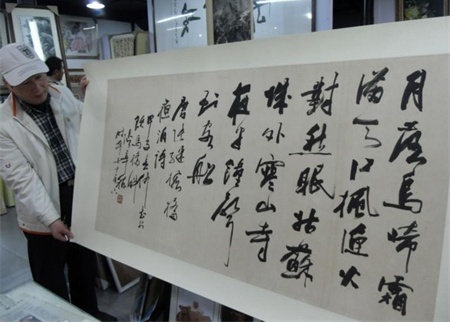 月落烏啼霜
滿天江楓漁火
對愁眠姑蘇
城外寒山寺
夜半鐘聲
到客船
唐張繼楓橋
夜泊詩